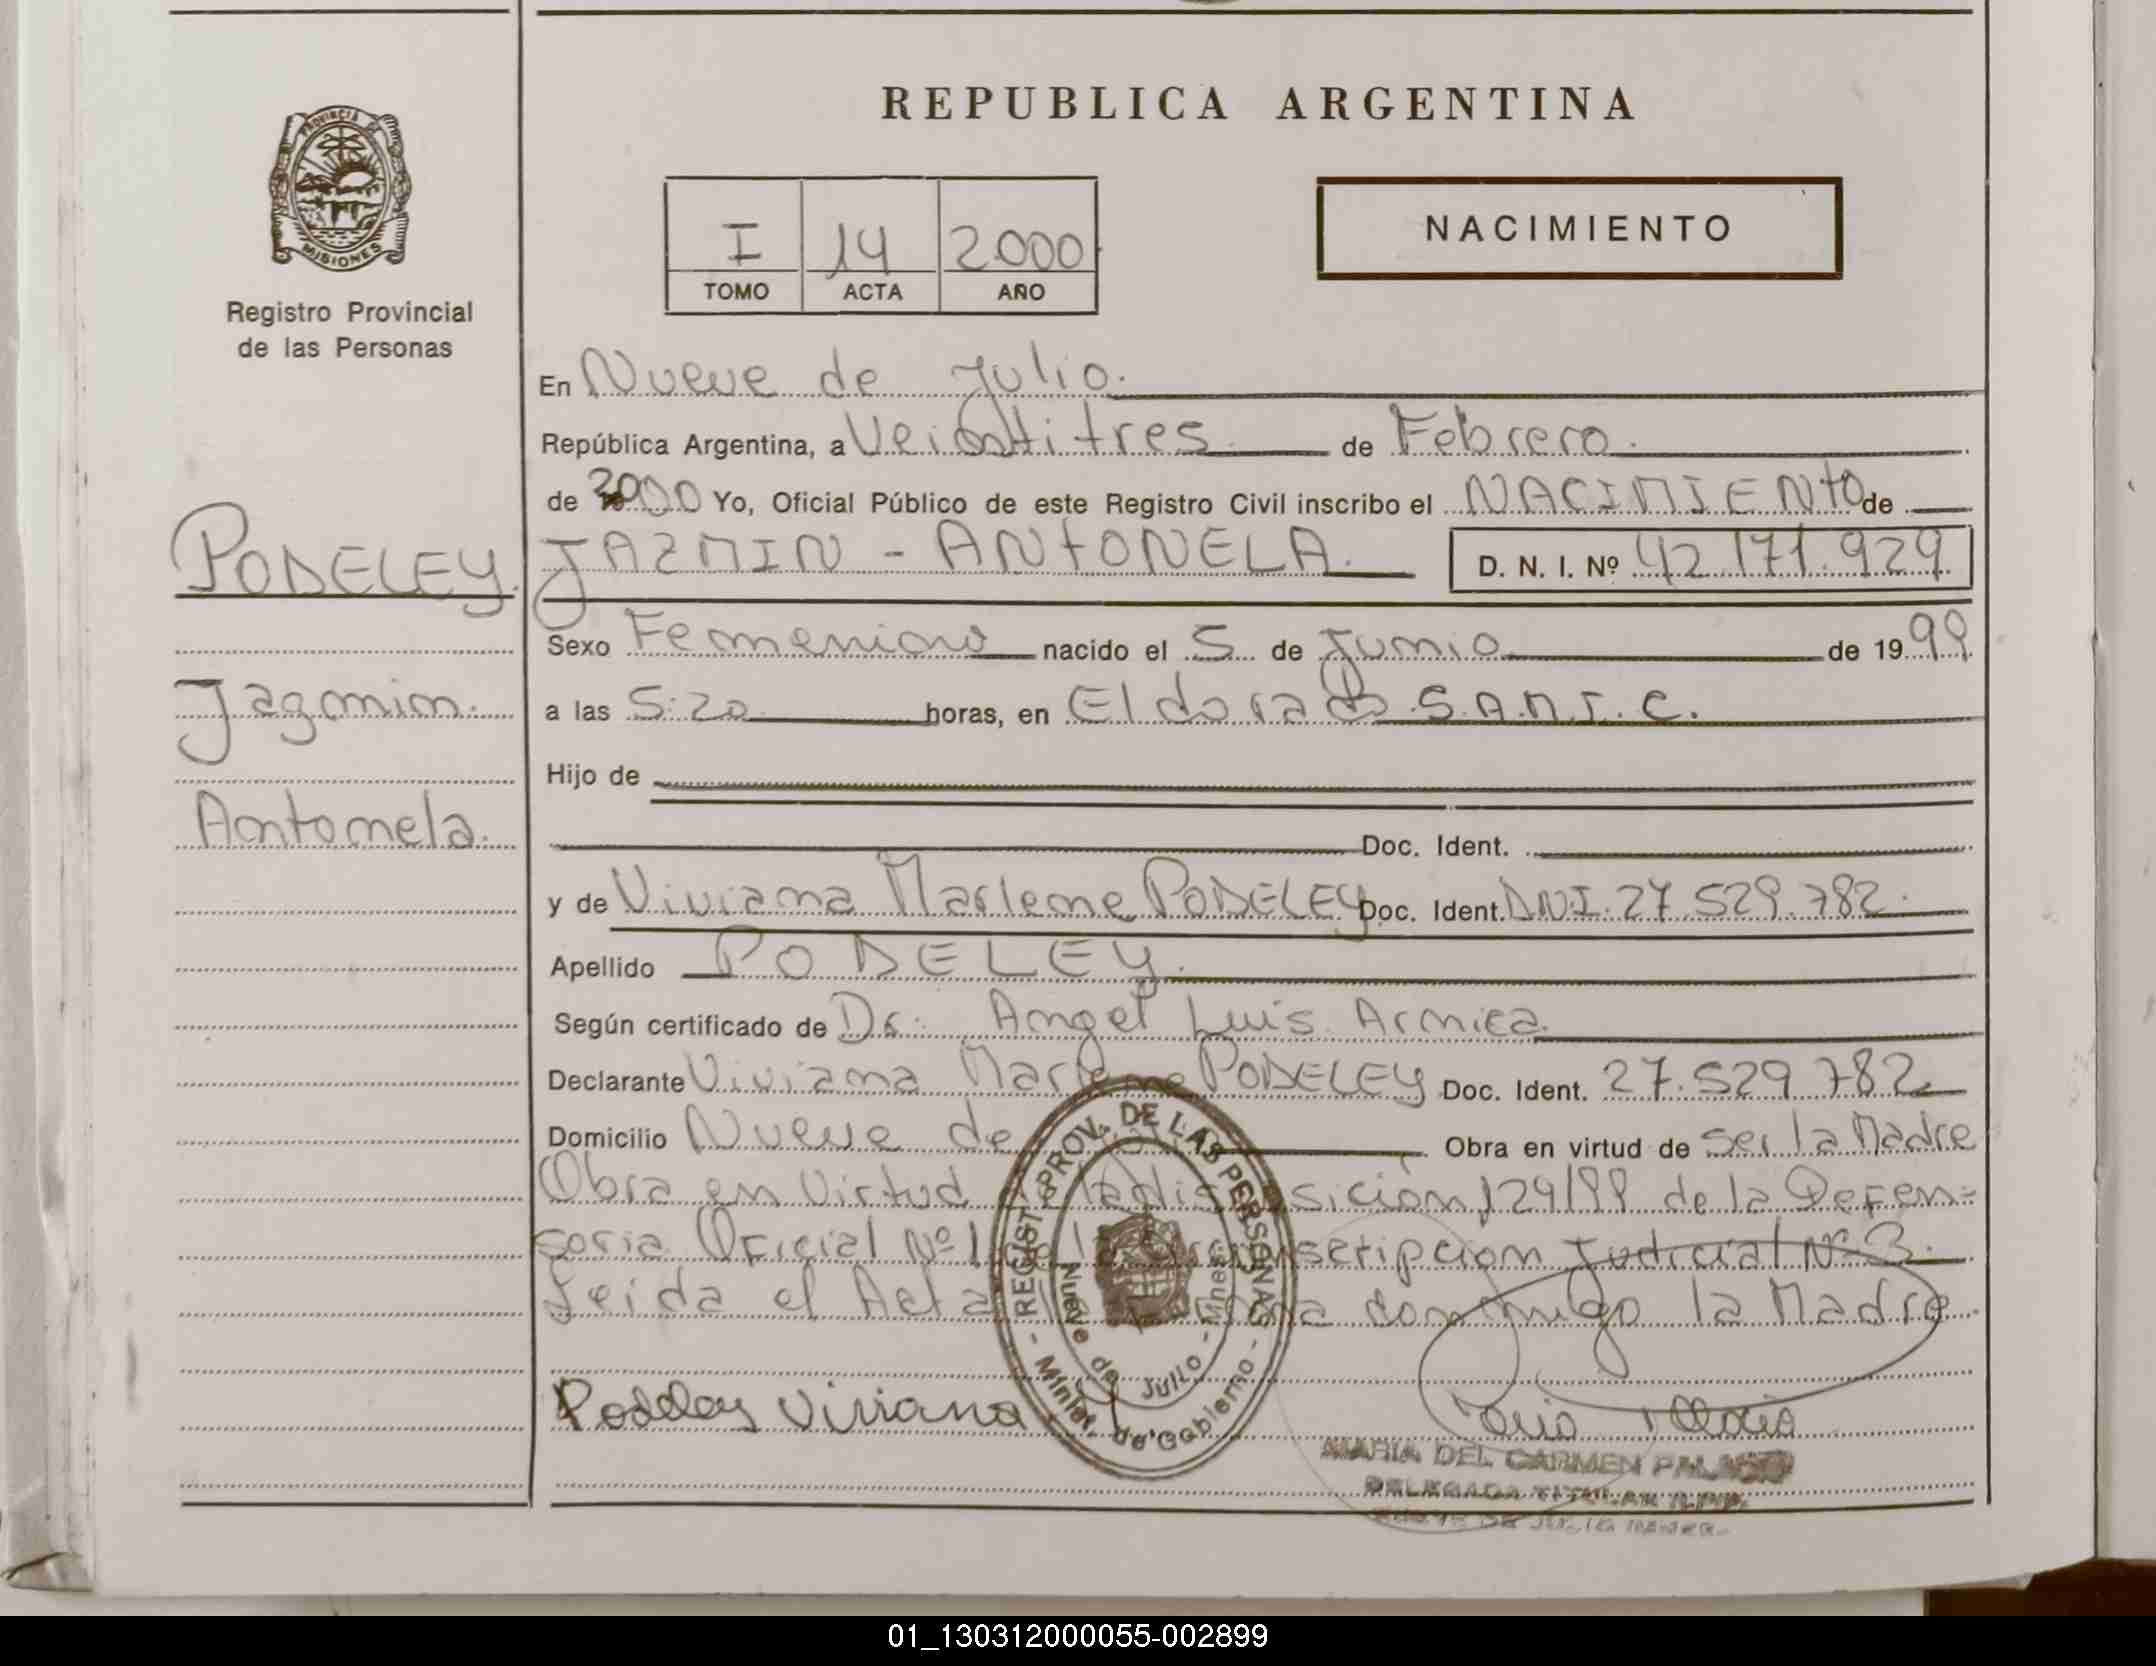 REPUBLICA ARGENTINA
PROVINCIA DE
MISIONES
Registro Provincial
de las Personas
NACIMIENTO
I 14 2000
TOMO ACTA AÑO
En Nueve de Julio.
República Argentina, a Veintitres de Febrero.
de 2000 Yo, Oficial Público de este Registro Civil inscribo el NACIMIENTO de
PODELEY
Jazmin
Antonela.
JAZMIN - ANTONELA. D. N. I. Nº 42.171.929
Sexo Femenino nacido el 5 de Junio de 1999
a las 5:20 horas, en Eldorado S.A.M.I.C.
Hijo de
Doc. Ident.
y de Viviana Marlene PODELEY Doc. Ident. D.N.I. 27.529.782.
Apellido PODELEY.
Según certificado de Dr. Angel Luis Arnica.
Declarante Viviana Marlene PODELEY Doc. Ident. 27.529.782
Domicilio Nueve de Obra en virtud de ser la Madre
Obra en Virtud la disposición 129/99 de la Defen=
soria Oficial Nº 1 de la circunscripcion Judicial Nº 3.
Leida el Acta conmigo la Madre
Podeley Viviana
REGIST. PROV. DE LAS PERSONAS
- Minist. de Gobierno -
Nueve de Julio - Mnes.
MARIA DEL CARMEN
DELEGADA TITULAR R.P.P.
NUEVE DE JULIO
01_130312000055-002899